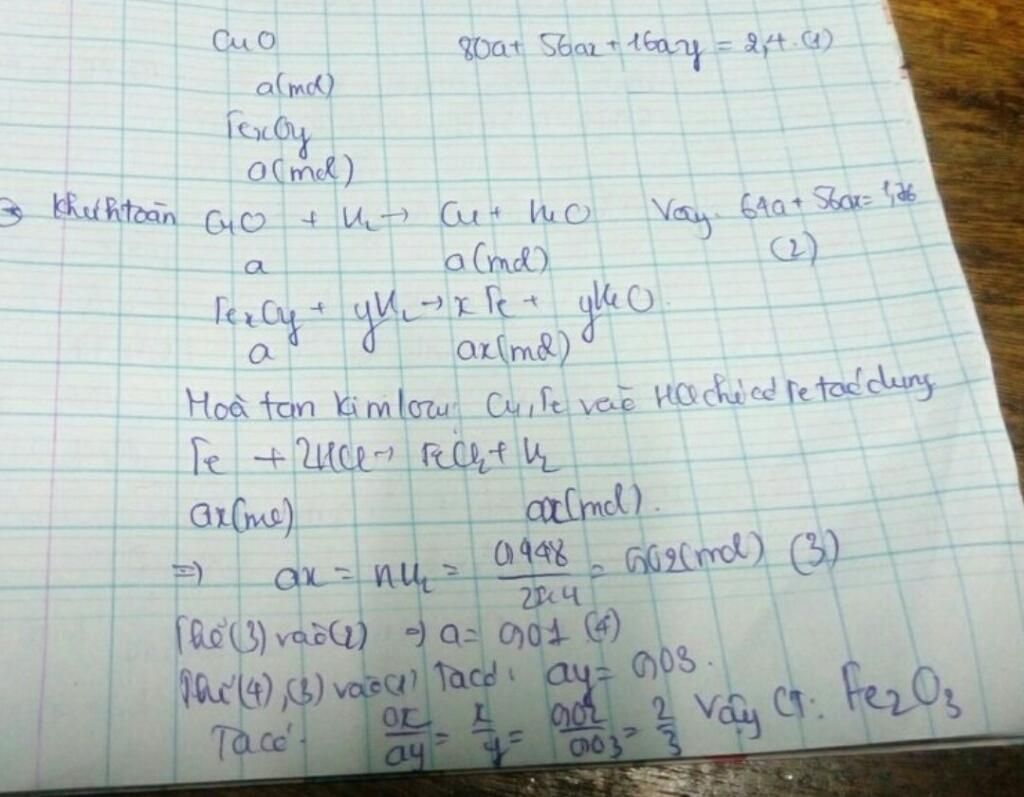 CuO 80a + 56ax + 16ay = 2,4. (1)
a(mol)
FexOy
a(mol)
CuO + H2 → Cu + H2O Vậy. 64a + 56ax = 1,76
a a(mol) (2)
FexOy + yH2 → xFe + yH2O.
a ax(mol)
Hoà tan kim loại Cu, Fe vào HCl chỉ có Fe tác dụng
Fe + 2HCl → FeCl2 + H2
ax(mol) ax(mol).
=) ax = nH2 = 0,448/22,4 = 0,02(mol) (3)
Thế (3) vào (2) =) a = 0,01 (4)
Thế (4), (3) vào (1) Ta có: ay = 0,03.
Ta có: ax/ay = x/y = 0,02/0,03 = 2/3 Vậy CT: Fe2O3